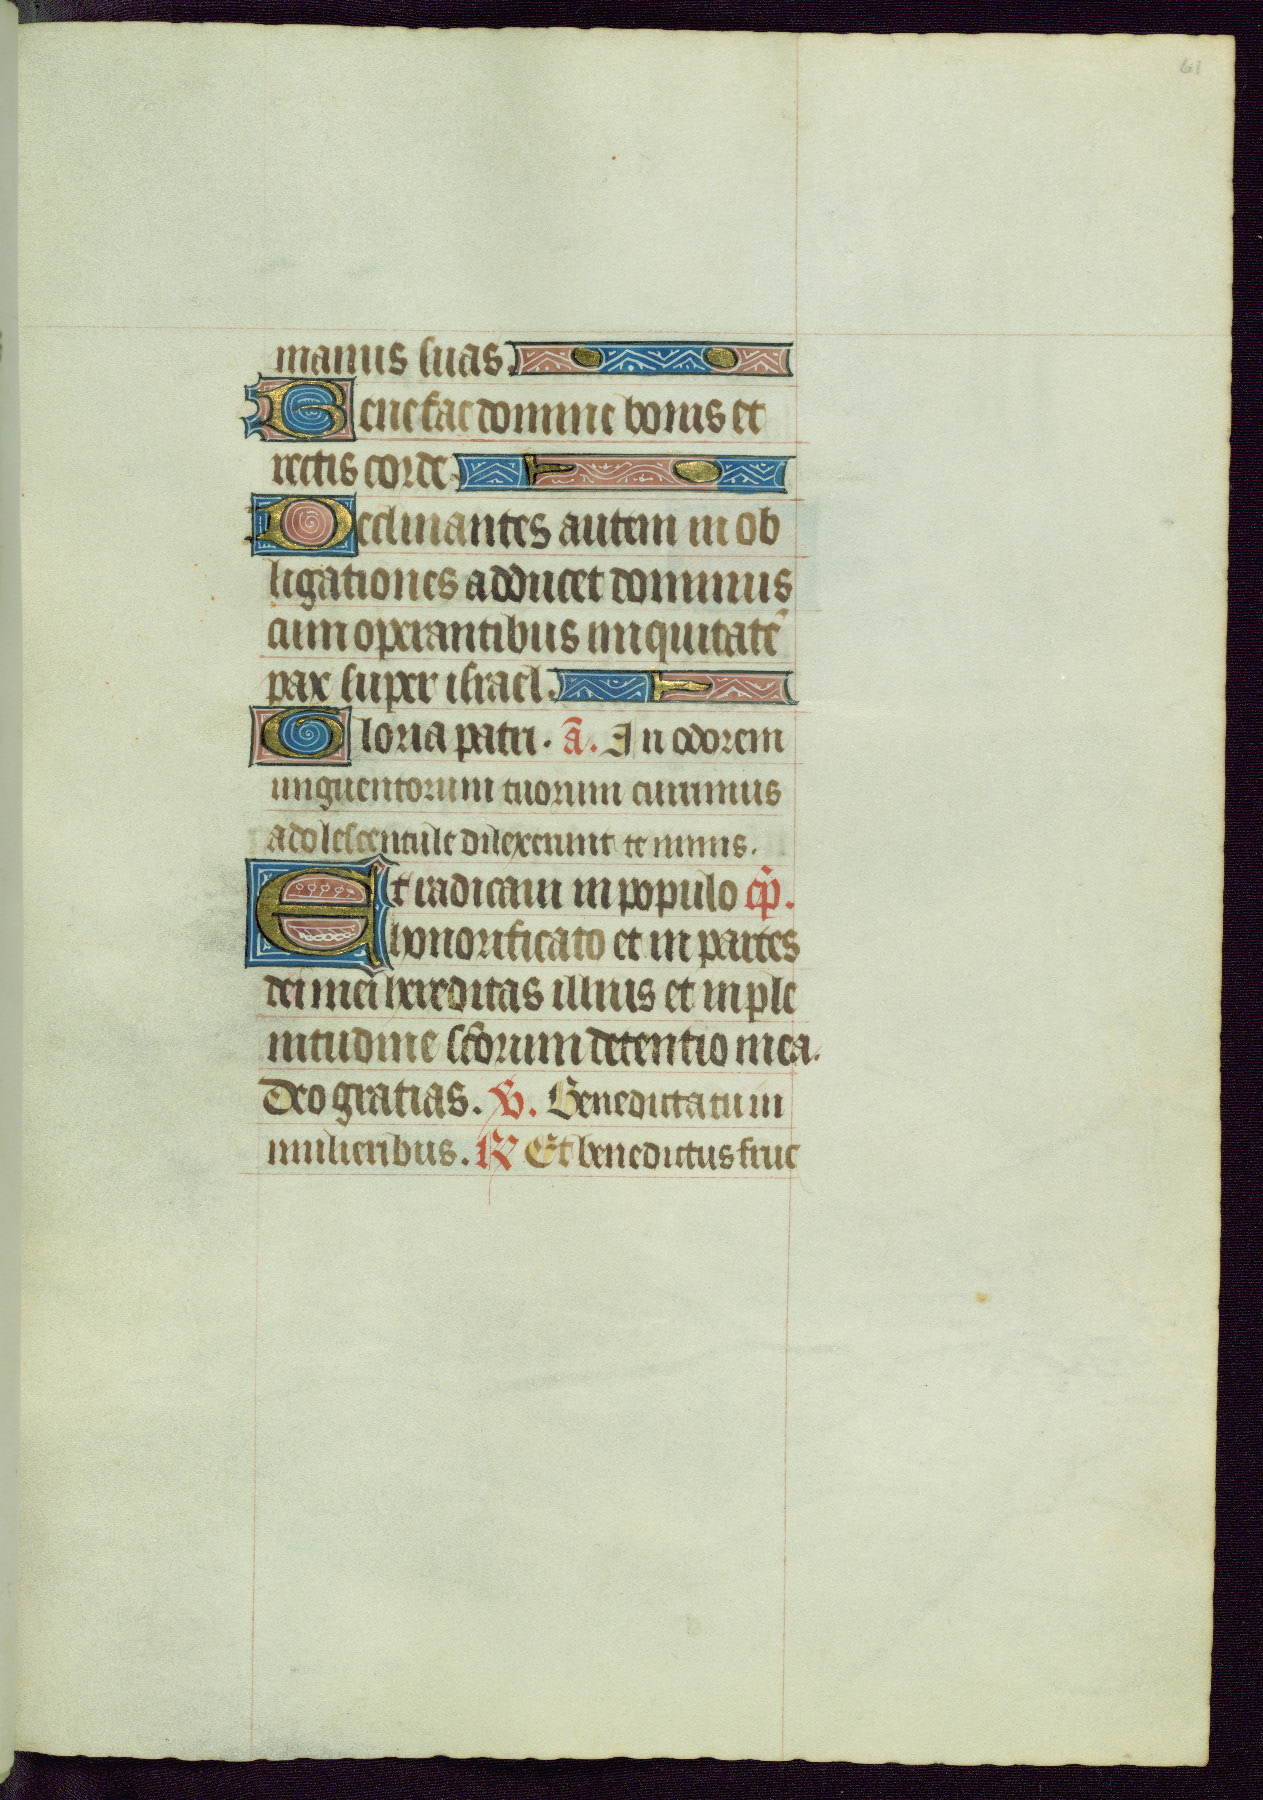 61
manus suas.
Benefac domine bonis et
rectis corde.
Declinantes autem in ob
ligationes adducet dominus
cum operantibus iniquitatē
pax super israel.
Gloria patri. ā. In odorem
unguentorum tuorum currimus
adolescentule dilexerunt te nimis.
Et radicaui in populo cp̄.
honorificato et in partes
dei mei hereditas illius et in ple
nitudine sc̄orum detentio mea.
Deo gratias. V. Benedicta tu in
mulieribus. R Et benedictus fruc